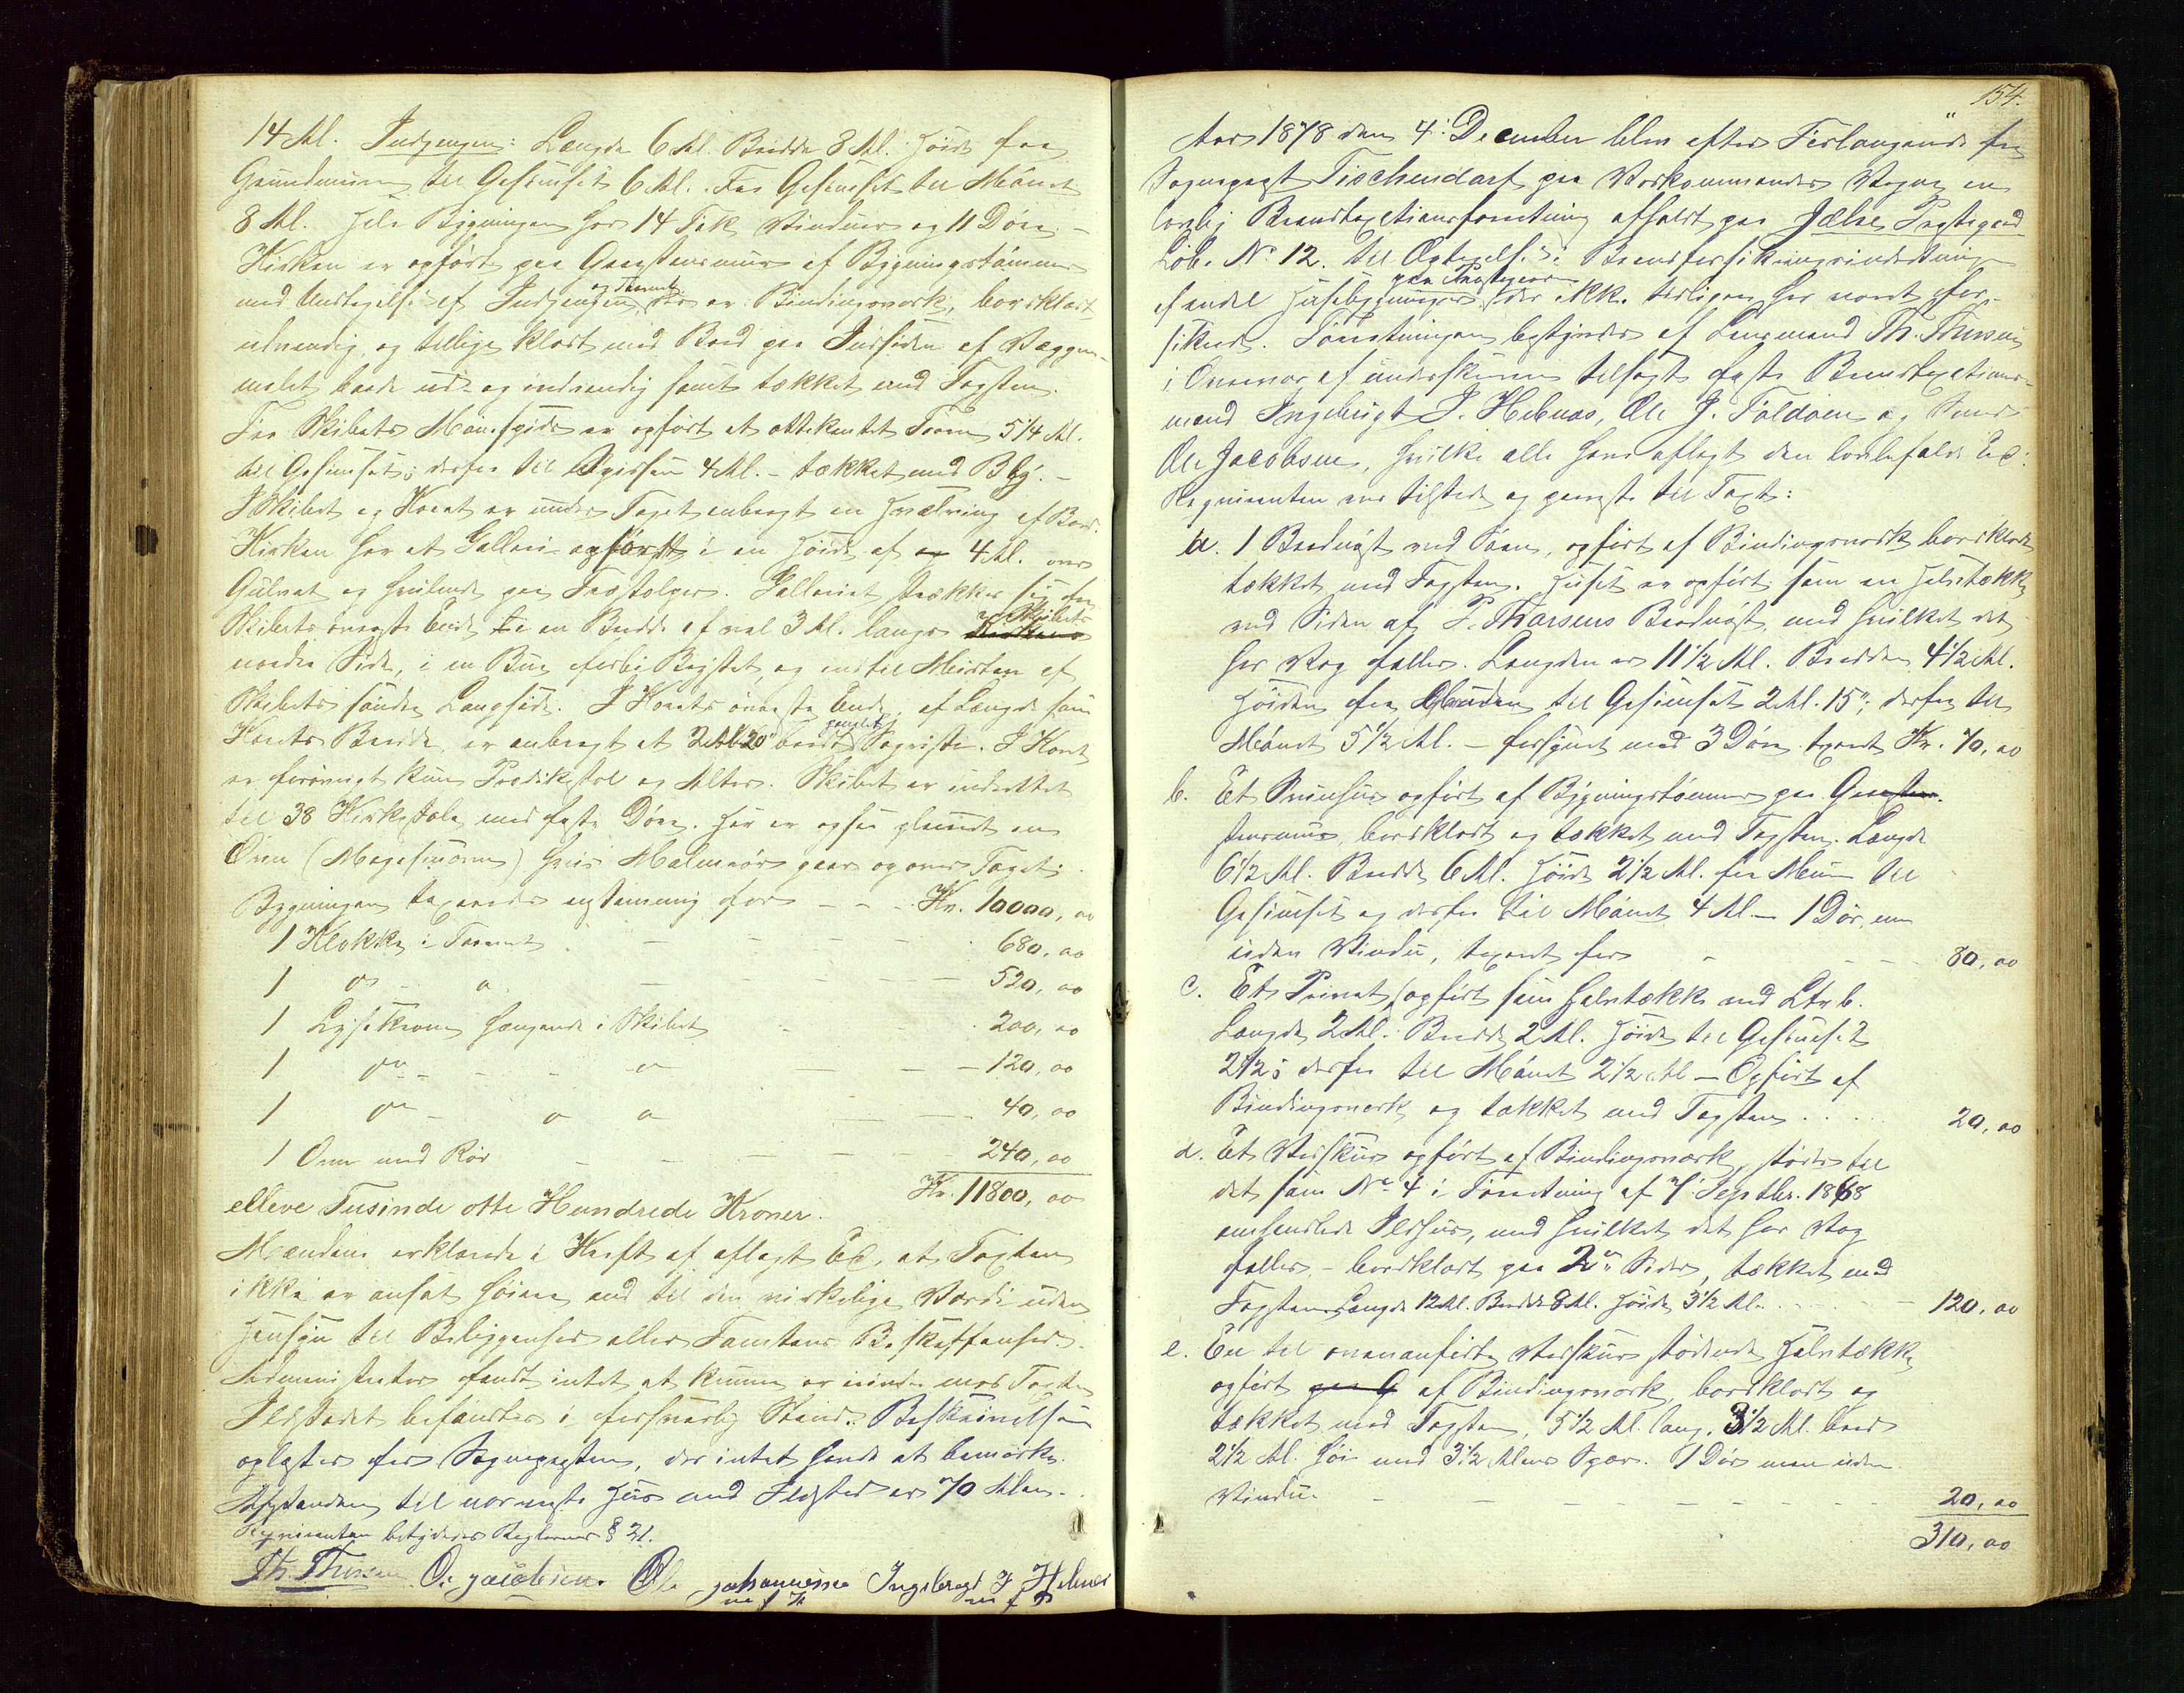 14 Al. Indgangen: Længde 6 Al. Bredde 8 Al. Høide fra
Grundmuren til Gesimset 6 Al. Fra Gesimset til Mønet
8 Al. Hele Bygningen har 14 Fak Vinduer og 11 Døre. -
Kirken er opført paa Graastensmur af Bygningstømmer
med Undtagelse af Indgangen og Taarnet der er Bindingsværk, bordklædt
udvendig og tillige klædt med Bord paa Indsiden af Væggene
malet baade ud- og indvendig samt tækket med Tagsten.
Fra Skibets Mønespids er opført et ottekantet Taarn 5 1/4 Al.
til Gesimset; derfra til Spidsen 4 Al. - tækket med Bly. -
I Skibet og Koret er under Taget anbragt en Hvælving af Bord.
Kirken har et Galleri opført i en Høide af 4 Al. over
Gulvet og hvilende paa Træstolper. Galleriet strækker sig fra
Skibets øverste Ende i en Bredde af vel 3 Al. langs Skibets
nordre Side, i en Bue forbi Bagstet, og indtil Midten af
Skibets søndre Langside. I Korets øverste Ende, af Længde som
Korets Bredde, er anbragt et 2 Al. 20" bredt panelet Sagristi. I Koret
er forøvrigt kun Prædikestol og Alter. Skibet er inddeelt
til 38 Kirkestole med faste Døre. Her er ogsaa plasseret en
Ovn (Magasinovn) hvis Malmrør gaar op over Taget.
Bygningen taxeredes enstemmig for - - - Kr. 10000,00
1 Klokke i Taarnet - - - - 680,00
1 do - o - - - - 520,00
1 Lysekrone hængende i Skibet - 200,00
1 do - - - o - - 120,00
1 do - o o - - 40,00
1 Ovn med Rør - - - - - 240,00
elleve Tusinde otte Hundrede Kroner. Kr. 11800,00
Mændene erklærede i Kraft af aflagt Ed, at Taxten
ikke er ansat høiere end til den virkelige Værdi uden
Hensyn til Beliggenhed eller Tomtens Beskaffenhed.
Administrator fandt intet at kunne erindre mod Taxten
Ildstedet befandtes i forsvarlig Stand. Beskrivelsen
oplæstes for Sognepresten, der intet havde at bemærke.
Afstanden til nærmeste Huus med Ildsted er 70 Alen.
Rekvirenten betydedes Reglernes § 21.
Th. Thirsen O. Jacobsen. Ole Johannesen Ingebregt J Hebnes
m f P m f P
154.
Aar 1878 den 4. December blev efter Forlangende fra
Sognepræst Tischendorf paa Vedkommendes Vegne en
lovlig Brandtaxationsforretning afholdt paa Jælse Præstegaard
Løb. No 12. til Optagelse i Brandforsikringsindretningen
af endel Huusbygninger paa Præstegaarden der ikke tidligere har været for-
sikret. Forretningen bestyredes af Lensmand Th. Thirsen
i Overvær af underskrevne tilsagte faste Brandtaxations-
mænd Ingebrigt J. Hebnes, Ole J. Foldøen og
Ole Jacobsen, hvilke alle have aflagt den lovbefalede Ed.
Rekvirenten var tilstede og paaviste til Taxt:
a. 1 Baadnøst ved Søen, opført af Bindingsværk bordklædt
tækket med Tagsten. Huset er opført som en Halvtække
ved Siden af P. Thorsens Baadnøst med hvilket det
har Væg fælles. Længden er 11 1/2 Al. Bredden 4 1/2 Al.
Høiden fra Grunden til Gesimset 2 Al. 15"; derfra til
Mønet 5 1/2 Al. - forsynet med 3 Døre taxeret Kr. 70,00
b. Et Svinehus opført af Bygningstømmer paa Graasten-
stensmur, bordklædt og tækket med Tagsten. Længde
6 1/2 Al. Bredde 6 Al. Høide 2 1/2 Al. fra Muren til
Gesimset og derfra til Mønet 4 Al - 1 Dør, men
uden Vindu, taxeret for - - - - 80,00
c. Et Privet opført som Halvtække ved Ltr b.
Længde 2 Al. Bredde 2 Al. Høide til Gesimset
2 1/2; derfra til Mønet 2 1/2 Al - Opført af
Bindingsværk og tækket med Tagsten . . . 20,00
d. Et Vedskur opført af Bindingsværk, støder til
det som No 4 i Forretning af 7. Septbr. 1868
omhandlede Ildhus, med hvilket det har Væg
fælles, - bordklædt paa 2de Sider, tækket med
Tagsten Længde 12 Al. Bredde 8 Al. Høide 3 1/2 Al. - - - 120,00
e. En til ovenanførte Vedskur stødende Halvtække
opført paa G af Bindingsværk, bordklædt og
tækket med Tagsten, 5 1/2 Al. lang, 3 1/2 Al. bred
2 1/2 Al. høi med 3 1/2 Alens Spær. 1 Dør men uden
Vindu - - - - - - - - 20,00
310,00